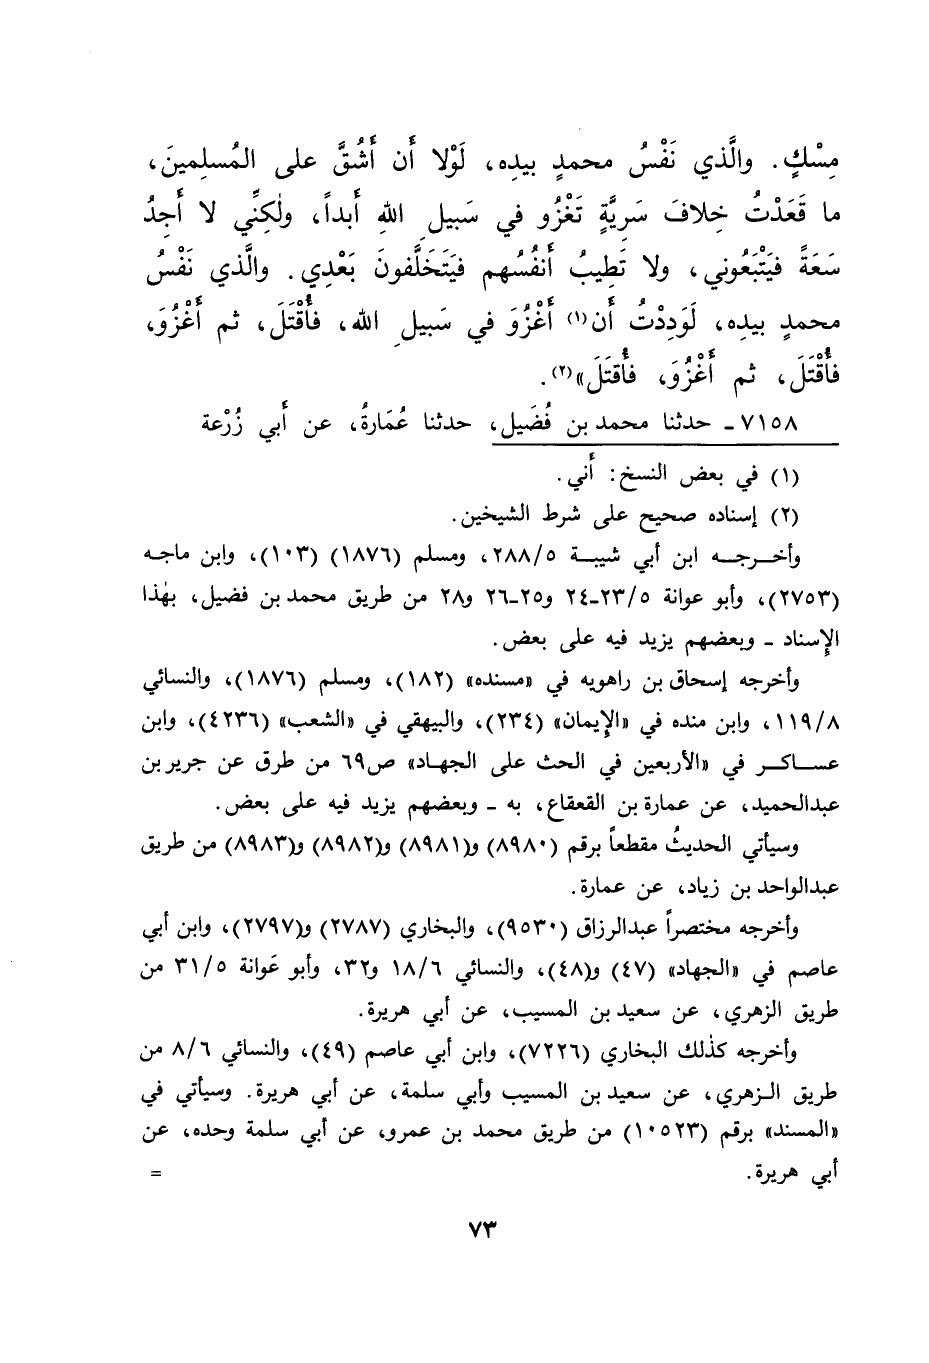 مِسْكٍ. والَّذي نَفْسُ محمدٍ بيدِه، لَوْلا أَن أَشُقَّ على المُسلِمينَ،
ما قَعَدْتُ خِلافَ سَرِيَّةٍ تَغْزُو في سَبيلِ اللهِ أبداً، ولٰكِنِّي لا أَجِدُ
سَعَةً فيَتْبَعُوني، ولا تَطِيبُ أَنفُسُهم فيَتَخَلَّفونَ بَعْدِي. والَّذي نَفْسُ
محمدٍ بيدِه، لَوَدِدْتُ أَن(١) أَغْزُوَ في سَبيلِ الله، فأُقْتَلَ، ثم أَغْزُوَ،
فأُقْتَلَ، ثم أَغْزُوَ، فأُقتَلَ»(٢).
٧١٥٨ - حدثنا محمد بن فُضَيل، حدثنا عُمَارةُ، عن أَبي زُرْعة
(١) في بعض النسخ: أَني.
(٢) إسناده صحيح على شرط الشيخين.
وأخرجه ابن أبي شيبة ٢٨٨/٥، ومسلم (١٨٧٦) (١٠٣)، وابن ماجه
(٢٧٥٣)، وأبو عوانة ٢٣/٥-٢٤ و٢٥-٢٦ و٢٨ من طريق محمد بن فضيل، بهٰذا
الإسناد - وبعضهم يزيد فيه على بعض.
وأخرجه إسحاق بن راهويه في «مسنده» (١٨٢)، ومسلم (١٨٧٦)، والنسائي
١١٩/٨، وابن منده في «الإيمان» (٢٣٤)، والبيهقي في «الشعب» (٤٢٣٦)، وابن
عساكر في «الأربعين في الحث على الجهاد» ص٦٩ من طرق عن جرير بن
عبدالحميد، عن عمارة بن القعقاع، به - وبعضهم يزيد فيه على بعض.
وسيأتي الحديثُ مقطعاً برقم (٨٩٨٠) و(٨٩٨١) و(٨٩٨٢) و(٨٩٨٣) من طريق
عبدالواحد بن زياد، عن عمارة.
وأخرجه مختصراً عبدالرزاق (٩٥٣٠)، والبخاري (٢٧٨٧) و(٢٧٩٧)، وابن أبي
عاصم في «الجهاد» (٤٧) و(٤٨)، والنسائي ١٨/٦ و٣٢، وأبو عَوانة ٣١/٥ من
طريق الزهري، عن سعيد بن المسيب، عن أبي هريرة.
وأخرجه كذٰلك البخاري (٧٢٢٦)، وابن أبي عاصم (٤٩)، والنسائي ٨/٦ من
طريق الزهري، عن سعيد بن المسيب وأبي سلمة، عن أبي هريرة. وسيأتي في
«المسند» برقم (١٠٥٢٣) من طريق محمد بن عمرو، عن أبي سلمة وحده، عن
أبي هريرة. =
٧٣